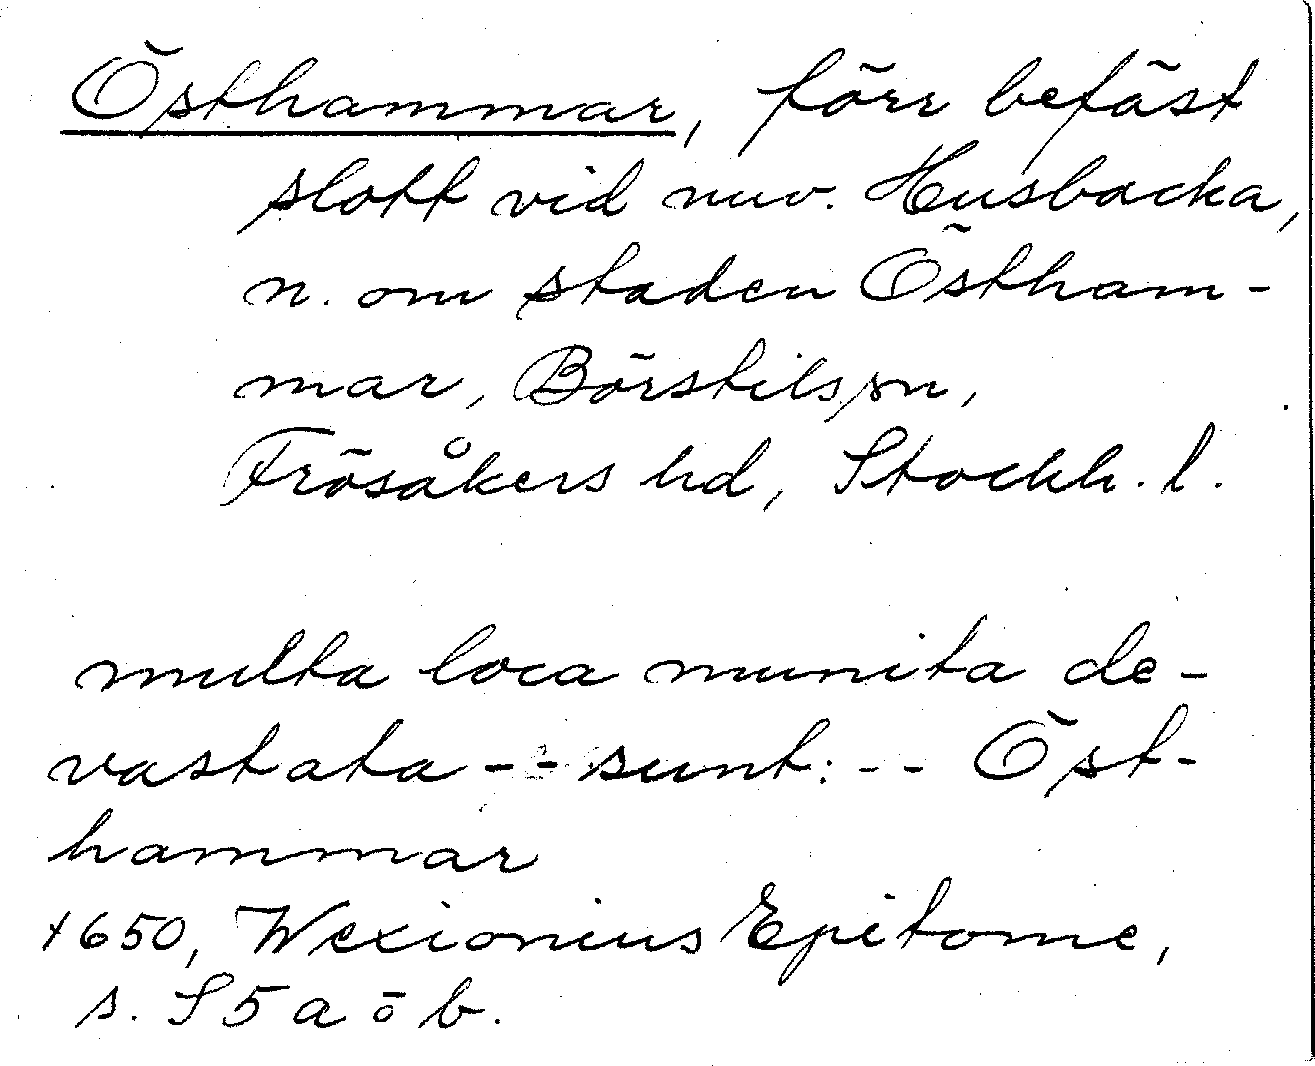 Östhammar, förr befäst
slott vid nuv. Husbacka,
n. om staden Östham-
mar, Börstils sn,
Frösåkers hd, Stockh. l.
multa loca munita de-
vastata -- sunt: -- Öst-
hammar
1650, Wexionius Epitome,
s. S 5 a o b.